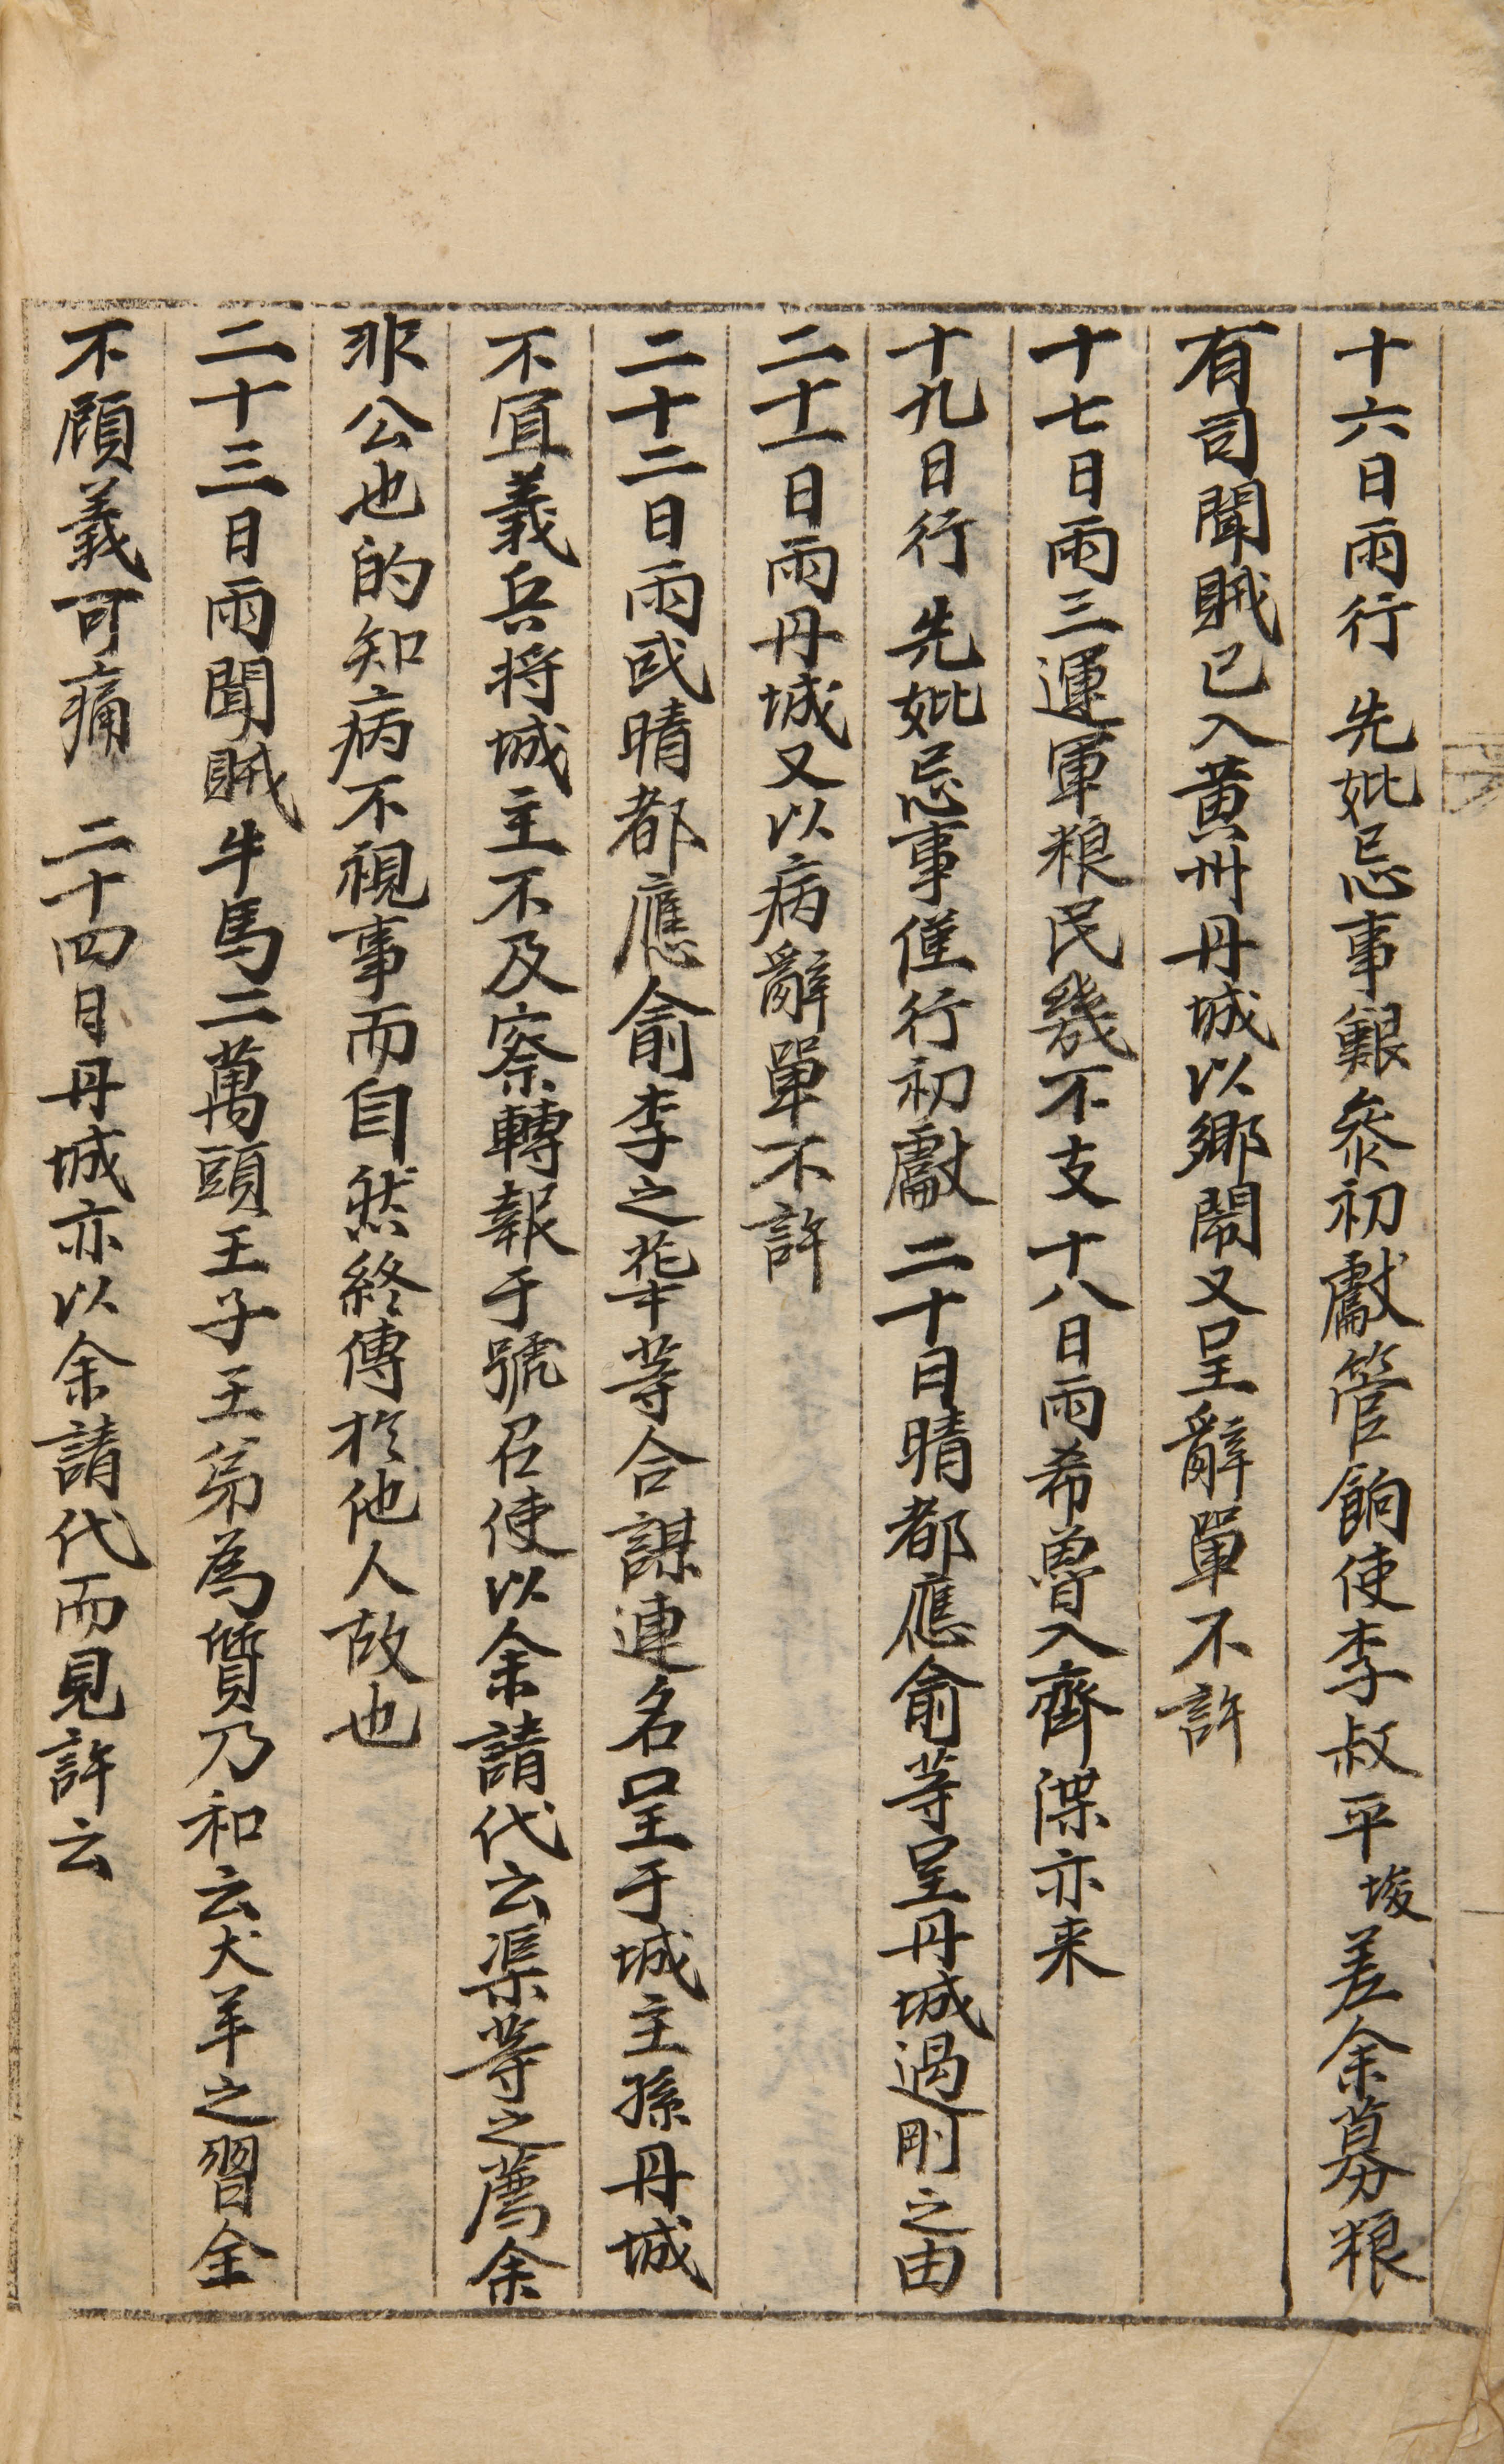 十六日雨行 先妣忌事艱叅初獻管餉使李叔平埈差余募粮
有司聞賊已入黃州丹城以鄕閙又呈辭單不許
十七日雨三運軍粮民幾不支十八日雨希曾入齊渫亦来
十九日行 先妣忌事僅行初獻二十日晴都應兪等呈丹城過剛之由
二十一日雨丹城又以病辭單不許
二十二日雨或晴都應兪李之華等合謀連名呈于城主孫丹城
不宜義兵将城主不及察轉報于號召使以余請代云渠等之薦余
非公也的知病不視事而自然終傳於他人故也
二十三日雨聞賊牛馬二萬頭王子王弟為質乃和云犬羊之習全
不顧義可痛 二十四日丹城亦以余請代而見許云